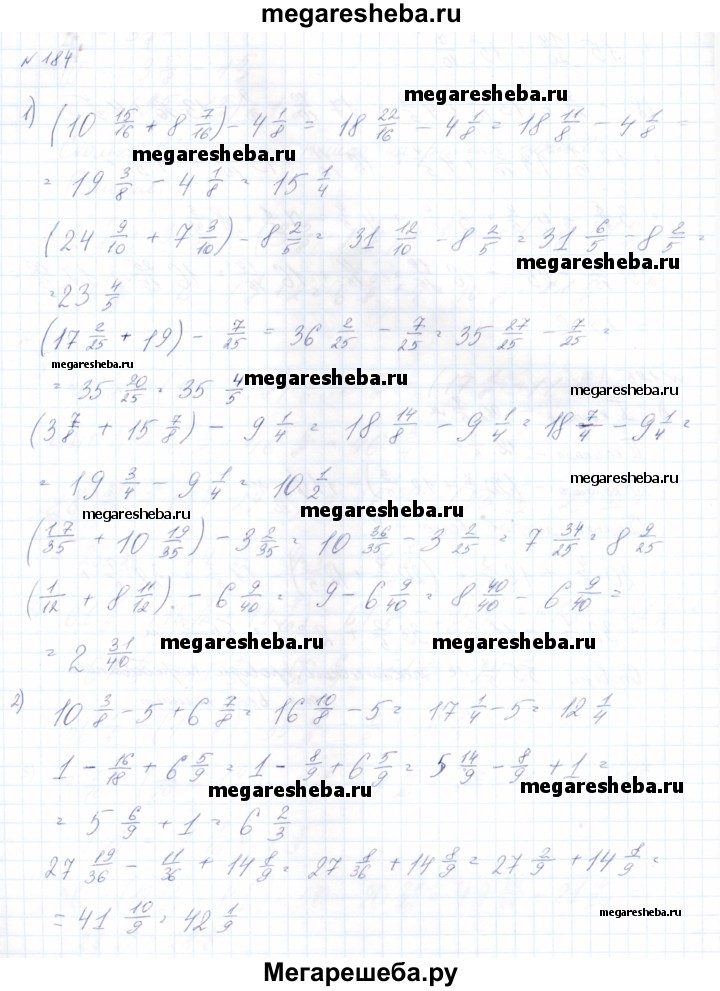 megaresheba.ru
№ 184
megaresheba.ru
1) (10 15/16 + 8 7/16) - 4 1/8 = 18 22/16 - 4 1/8 = 18 11/8 - 4 1/8 =
megaresheba.ru
= 19 3/8 - 4 1/8 = 15 1/4
(24 9/10 + 7 3/10) - 8 2/5 = 31 12/10 - 8 2/5 = 31 6/5 - 8 2/5 =
megaresheba.ru
= 23 4/5
(17 2/25 + 19) - 7/25 = 36 2/25 - 7/25 = 35 27/25 - 7/25 =
megaresheba.ru
megaresheba.ru
megaresheba.ru
= 35 20/25 = 35 4/5
(3 7/8 + 15 7/8) - 9 1/4 = 18 14/8 - 9 1/4 = 18 7/4 - 9 1/4 =
= 19 3/4 - 9 1/4 = 10 1/2
megaresheba.ru
megaresheba.ru
megaresheba.ru
(17/35 + 10 19/35) - 3 2/35 = 10 36/35 - 3 2/25 = 7 34/25 = 8 9/25
(1/12 + 8 11/12) - 6 9/40 = 9 - 6 9/40 = 8 40/40 - 6 9/40 =
megaresheba.ru
megaresheba.ru
= 2 31/40
2) 10 3/8 - 5 + 6 7/8 = 16 10/8 - 5 = 17 1/4 - 5 = 12 1/4
1 - 16/18 + 6 5/9 = 1 - 8/9 + 6 5/9 = 5 14/9 - 8/9 + 1 =
megaresheba.ru
megaresheba.ru
= 5 6/9 + 1 = 6 2/3
27 19/36 - 11/36 + 14 8/9 = 27 8/36 + 14 8/9 = 27 2/9 + 14 8/9 =
= 41 10/9 = 42 1/9
megaresheba.ru
Мегарешеба.ру